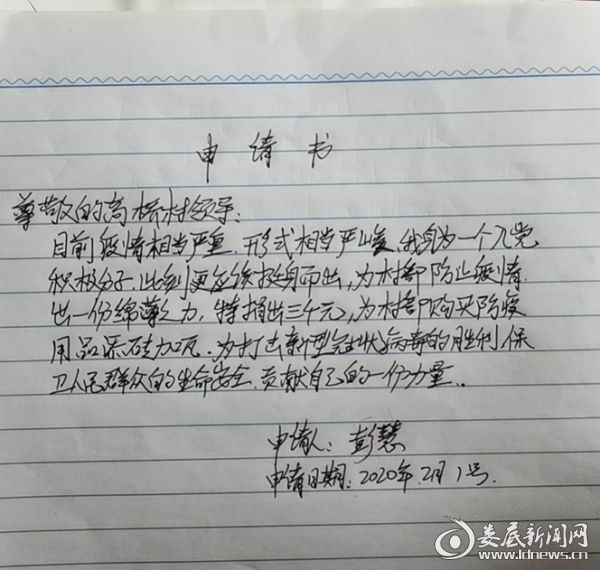 申请书
尊敬的高桥村领导:
目前疫情相当严重.形式相当严峻,我身为一个入党
积极分子.此刻更应该挺身而出,为村部防止疫情
出一份绵薄之力,特捐出三千元,为村部购买防疫
用品添砖加瓦.为打击新型冠状病毒的胜利,保
卫人民群众的生命安全.贡献自己的一份力量..
申请人:彭慧
申请日期:2020年.2月1号.
娄底新闻网
www.ldnews.cn